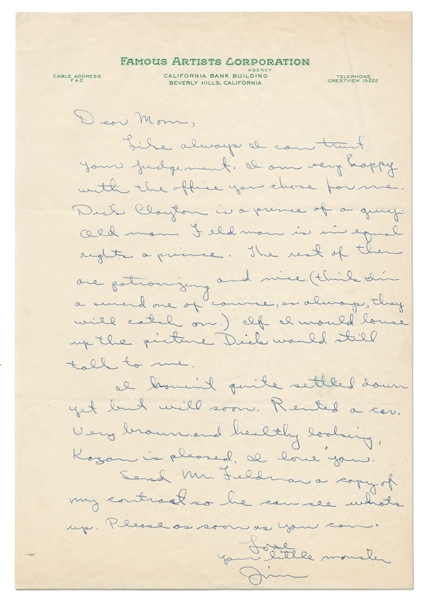 FAMOUS ARTISTS CORPORATION
AGENCY
CABLE ADDRESS
FAC
CALIFORNIA BANK BUILDING
BEVERLY HILLS, CALIFORNIA
TELEPHONE
CRESTVIEW 15222
Dear Mom,
Like always I can trust
your judgement. I am very happy
with the office you chose for me.
Dick Clayton is a prince of a guy.
Old man Feldman is in equal
rights a prince. The rest of them
are patronizing and nice (think I'm
a weird one of course, as always, they
will catch on.) If I would louse
up the picture Dick would still
talk to me.
I haven't quite settled down
yet but will soon. Rented a car.
Very brown and healthy looking,
Kazan is pleased, I love you.
Send Mr. Feldman a copy of
my contract so he can see whats
up. Please as soon as you can.
Love
your little monster
Jim